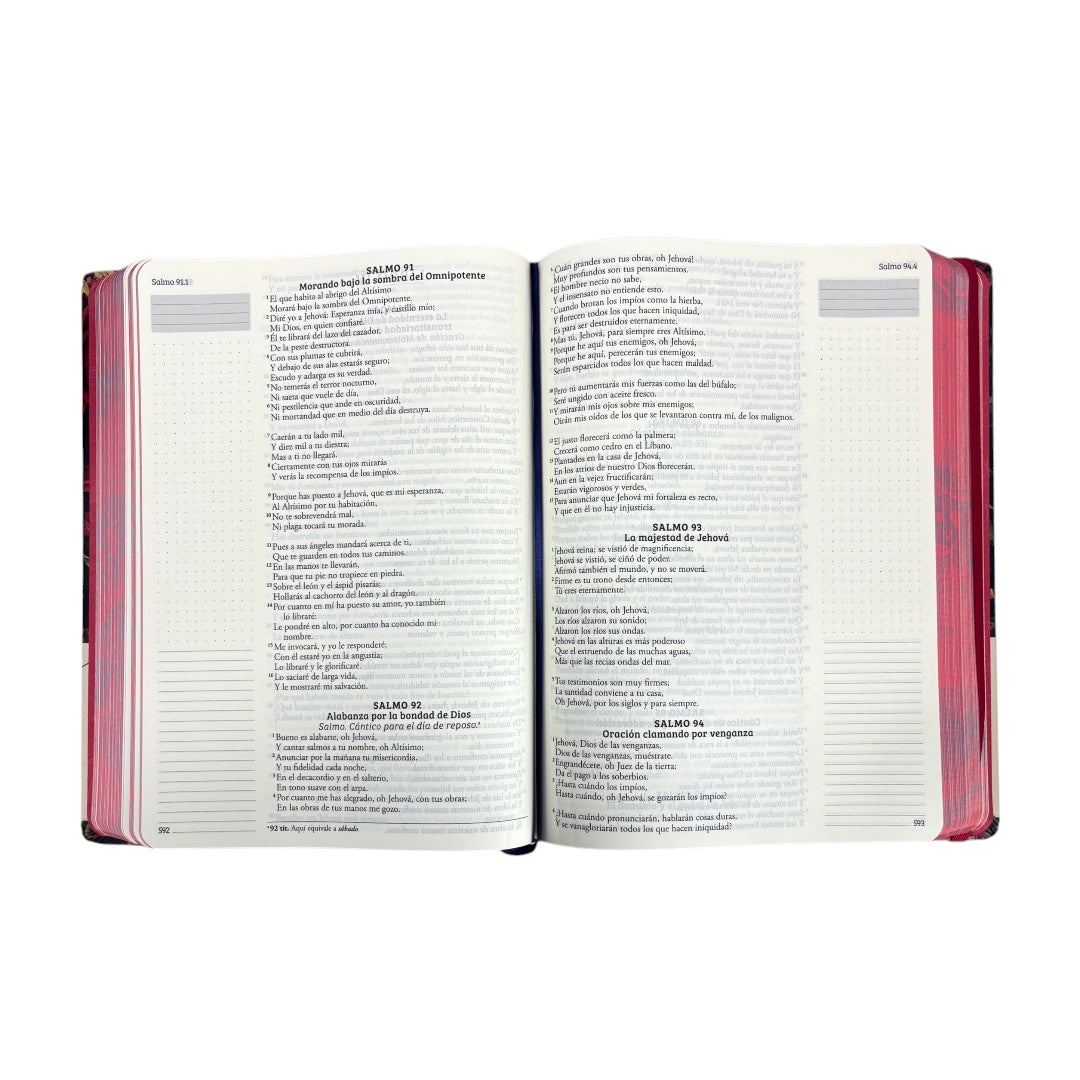 Salmo 91.1
SALMO 91
Morando bajo la sombra del Omnipotente
1 El que habita al abrigo del Altísimo
Morará bajo la sombra del Omnipotente.
2 Diré yo a Jehová: Esperanza mía, y castillo mío;
Mi Dios, en quien confiaré.
3 Él te librará del lazo del cazador,
De la peste destructora.
4 Con sus plumas te cubrirá,
Y debajo de sus alas estarás seguro;
Escudo y adarga es su verdad.
5 No temerás el terror nocturno,
Ni saeta que vuele de día,
6 Ni pestilencia que ande en oscuridad,
Ni mortandad que en medio del día destruya.
7 Caerán a tu lado mil,
Y diez mil a tu diestra;
Mas a ti no llegará.
8 Ciertamente con tus ojos mirarás
Y verás la recompensa de los impíos.
9 Porque has puesto a Jehová, que es mi esperanza,
Al Altísimo por tu habitación,
10 No te sobrevendrá mal,
Ni plaga tocará tu morada.
11 Pues a sus ángeles mandará acerca de ti,
Que te guarden en todos tus caminos.
12 En las manos te llevarán,
Para que tu pie no tropiece en piedra.
13 Sobre el león y el áspid pisarás;
Hollarás al cachorro del león y al dragón.
14 Por cuanto en mí ha puesto su amor, yo también
lo libraré;
Le pondré en alto, por cuanto ha conocido mi
nombre.
15 Me invocará, y yo le responderé;
Con él estaré yo en la angustia;
Lo libraré y le glorificaré.
16 Lo saciaré de larga vida,
Y le mostraré mi salvación.
SALMO 92
Alabanza por la bondad de Dios
Salmo. Cántico para el día de reposo.*
1 Bueno es alabarte, oh Jehová,
Y cantar salmos a tu nombre, oh Altísimo;
2 Anunciar por la mañana tu misericordia,
Y tu fidelidad cada noche,
3 En el decacordio y en el salterio,
En tono suave con el arpa.
4 Por cuanto me has alegrado, oh Jehová, con tus obras;
En las obras de tus manos me gozo.
* 92 tít. Aquí equivale a sábado.
592
Salmo 94.4
5 ¡Cuán grandes son tus obras, oh Jehová!
Muy profundos son tus pensamientos.
6 El hombre necio no sabe,
Y el insensato no entiende esto.
7 Cuando brotan los impíos como la hierba,
Y florecen todos los que hacen iniquidad,
Es para ser destruidos eternamente.
8 Mas tú, Jehová, para siempre eres Altísimo.
9 Porque he aquí tus enemigos, oh Jehová,
Porque he aquí, perecerán tus enemigos;
Serán esparcidos todos los que hacen maldad.
10 Pero tú aumentarás mis fuerzas como las del búfalo;
Seré ungido con aceite fresco.
11 Y mirarán mis ojos sobre mis enemigos;
Oirán mis oídos de los que se levantaron contra mí, de los malignos.
12 El justo florecerá como la palmera;
Crecerá como cedro en el Líbano.
13 Plantados en la casa de Jehová,
En los atrios de nuestro Dios florecerán.
14 Aun en la vejez fructificarán;
Estarán vigorosos y verdes,
15 Para anunciar que Jehová mi fortaleza es recto,
Y que en él no hay injusticia.
SALMO 93
La majestad de Jehová
1 Jehová reina; se vistió de magnificencia;
Jehová se vistió, se ciñó de poder.
Afirmó también el mundo, y no se moverá.
2 Firme es tu trono desde entonces;
Tú eres eternamente.
3 Alzaron los ríos, oh Jehová,
Los ríos alzaron su sonido;
Alzaron los ríos sus ondas.
4 Jehová en las alturas es más poderoso
Que el estruendo de las muchas aguas,
Más que las recias ondas del mar.
5 Tus testimonios son muy firmes;
La santidad conviene a tu casa,
Oh Jehová, por los siglos y para siempre.
SALMO 94
Oración clamando por venganza
1 Jehová, Dios de las venganzas,
Dios de las venganzas, muéstrate.
2 Engrandécete, oh Juez de la tierra;
Da el pago a los soberbios.
3 ¿Hasta cuándo los impíos,
Hasta cuándo, oh Jehová, se gozarán los impíos?
4 ¿Hasta cuándo pronunciarán, hablarán cosas duras,
Y se vanagloriarán todos los que hacen iniquidad?
593